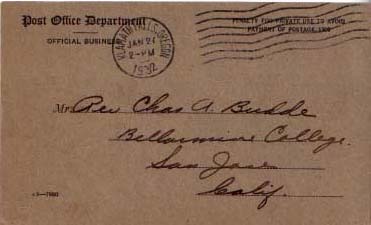 Post Office Department
OFFICIAL BUSINESS
KLAMATH FALLS, OREGON
JAN 27
2-PM
1932
PENALTY FOR PRIVATE USE TO AVOID
PAYMENT OF POSTAGE, $300
Mr. Rev Chas A. Budde
Bellarmine College.
San Jose
Calif.